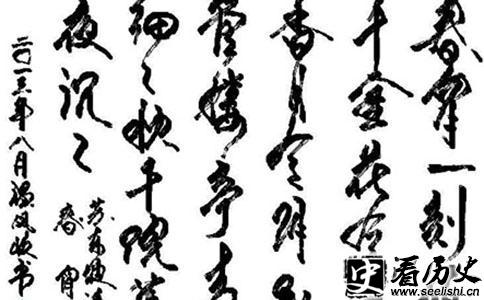 春宵一刻
千金花有
香月有阴
管楼亭声
细々秋千院落
夜沉々
苏东坡诗
春宵
二〇一三年八月
史看历史
www.seelishi.cn